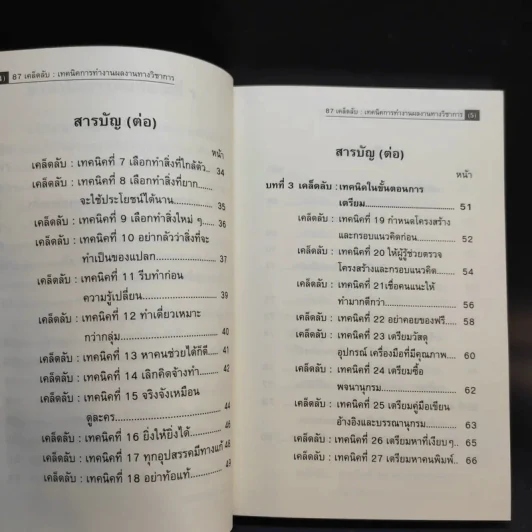 87 เคล็ดลับ : เทคนิคการทำงานผลงานทางวิชาการ
สารบัญ (ต่อ)
หน้า
เคล็ดลับ : เทคนิคที่ 7 เลือกทำสิ่งที่ใกล้ตัว.. 34
เคล็ดลับ : เทคนิคที่ 8 เลือกทำสิ่งที่ยาก
จะใช้ประโยชน์ได้นาน........... 35
เคล็ดลับ : เทคนิคที่ 9 เลือกทำสิ่งใหม่ ๆ.... 36
เคล็ดลับ : เทคนิคที่ 10 อย่ากลัวว่าสิ่งที่จะ
ทำเป็นของแปลก................ 37
เคล็ดลับ : เทคนิคที่ 11 รีบทำก่อน
ความรู้เปลี่ยน.................... 39
เคล็ดลับ : เทคนิคที่ 12 ทำเดี่ยวเหมาะ
กว่ากลุ่ม........................... 40
เคล็ดลับ : เทคนิคที่ 13 หาคนช่วยได้ก็ดี.... 41
เคล็ดลับ : เทคนิคที่ 14 เลิกคิดจ้างทำ....... 42
เคล็ดลับ : เทคนิคที่ 15 จริงจังเหมือน
ดูละคร.............................. 44
เคล็ดลับ : เทคนิคที่ 16 ยิ่งให้ยิ่งได้........... 46
เคล็ดลับ : เทคนิคที่ 17 ทุกอุปสรรคมีทางแก้ 48
เคล็ดลับ : เทคนิคที่ 18 อย่าท้อแท้............ 49
87 เคล็ดลับ : เทคนิคการทำงานผลงานทางวิชาการ (5)
สารบัญ (ต่อ)
หน้า
บทที่ 3 เคล็ดลับ : เทคนิคในขั้นตอนการ
เตรียม........................... 51
เคล็ดลับ : เทคนิคที่ 19 กำหนดโครงสร้าง
และกรอบแนวคิดก่อน......... 52
เคล็ดลับ : เทคนิคที่ 20 ให้ผู้รู้ช่วยตรวจ
โครงสร้างและกรอบแนวคิด.... 54
เคล็ดลับ : เทคนิคที่ 21เชื่อคนแนะให้
ทำมากดีกว่า................... 56
เคล็ดลับ : เทคนิคที่ 22 อย่าคอยของฟรี.. 58
เคล็ดลับ : เทคนิคที่ 23 เตรียมวัสดุ
อุปกรณ์ เครื่องมือที่มีคุณภาพ.... 60
เคล็ดลับ : เทคนิคที่ 24 เตรียมซื้อ
พจนานุกรม.................... 62
เคล็ดลับ : เทคนิคที่ 25 เตรียมคู่มือเขียน
อ้างอิงและบรรณานุกรม....... 63
เคล็ดลับ : เทคนิคที่ 26 เตรียมหาที่เงียบๆ.. 65
เคล็ดลับ : เทคนิคที่ 27 เตรียมหาคนพิมพ์. 66